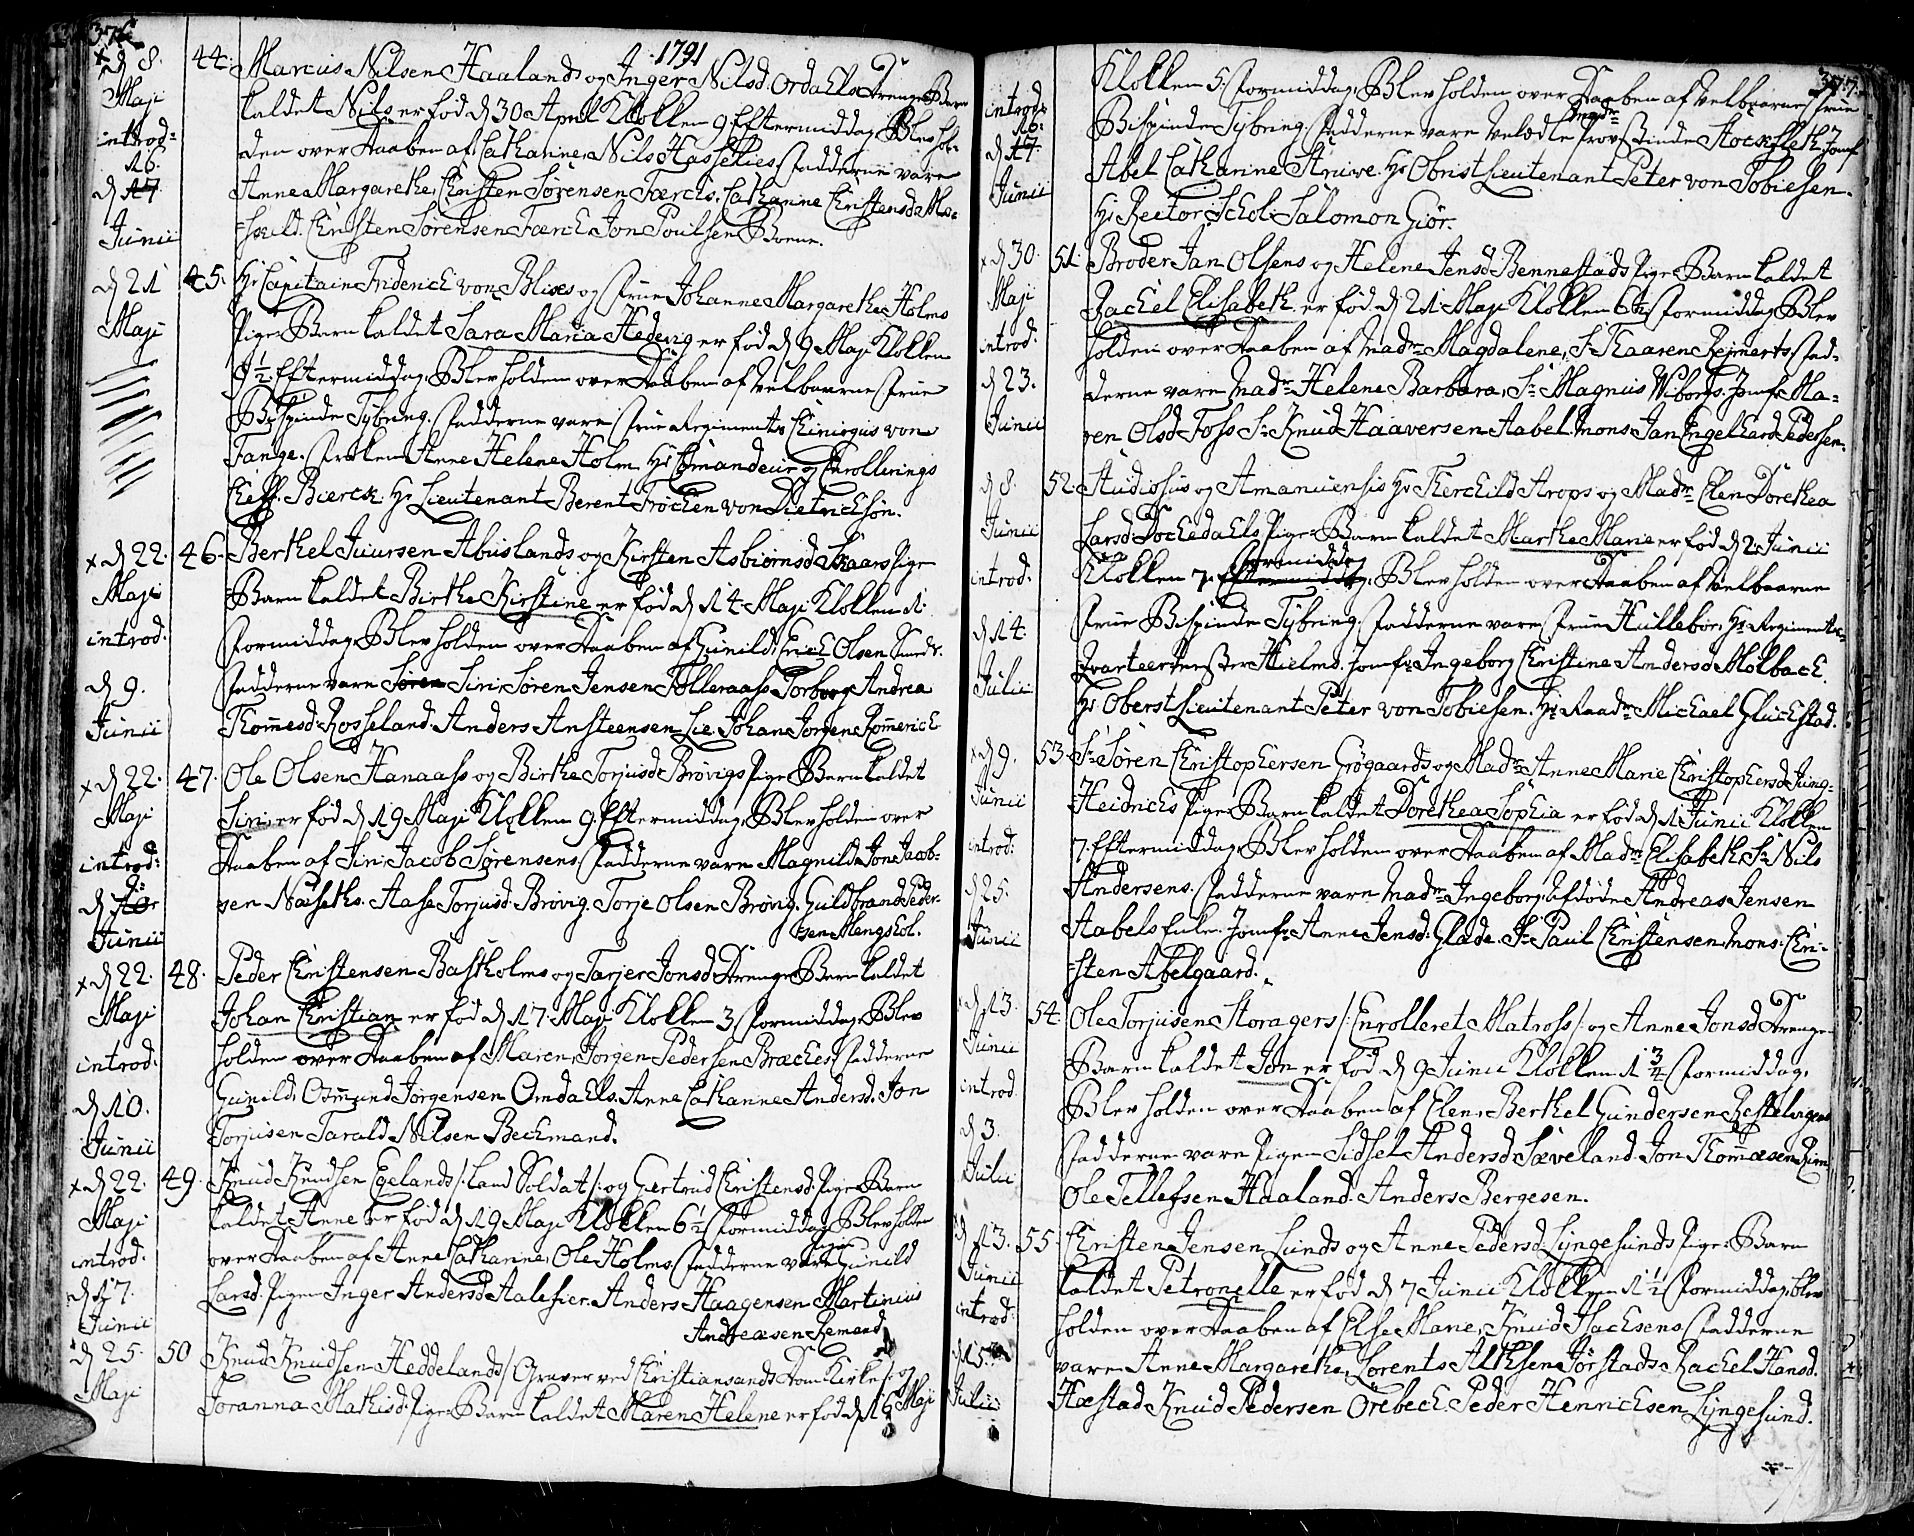 376
1791
x d 8. Maji introd: d 16. 17. Junii
44. Marcus Nilsen Haalands og Inger Nilsd. Ordahls Drenge Barn
kaldet Nils er fød d 30 April Klokken 9 Eftermiddag. Blev hol-
den over Daaben af Cathanine Nils Hassekies. Fadderne vare
Anne Margarethe Christen Sørensen Færchs. Cathanine Christensd.
Christen Sørensen Færch. Jon Poulsen Boene.
d 21 Maji
45. Hr Capitain Friderich von Blixes og Frue Johanne Margarethe Holms
Pige Barn kaldet Sara Maria Hedevig er fød d 9 Maji Klokken
9 1/2 Eftermiddag. Blev holden over Daaben af Velbaarne Frue
Bispinde Tybring. Fadderne vare Frue Regiments Chirurgus von
Fange. Frøken Anne Helene Holm. Hr Comandeur og Enrollerings
Cheff. Bierck. Hr Lieutenant Berent Frochen von Dietrichson.
x d 22. Maji introd. d 9. Junii
46. Berthel Juursen Abuslands og Kirsten Asbiørnsd Skaars Pige
Barn kaldet Birthe Kirstine er fød d 14 Maji Klokken 1.
Formiddag. Blev holden over Daaben af Gunild Erich Olsen
Fadderne vare Søren Siri Søren Jensen Tolleraass. Torborg Andrea
Thomesd. Rosseland. Anders Ansteensen Lie. Johan Jørgen Romerich
x d 22. Maji introd: d Junii
47. Ole Olsen Hanaass og Birthe Torjusd Brøvigs Pige Barn kaldet
Siri er fød d 19 Maji Klokken 9. Eftermiddag. Blev holden over
Daaben af Siri Jacob Sørensens. Fadderne vare Magnild Jone Jacob-
sen Naseths. Aase Torjusd. Brøvig. Torje Olsen Brøvig. Guldbrand Peder-
sen Mengshol.
x d 22. Maji introd: d 10. Junii
48. Peder Christensen Bastholms og Tarjer Jonsd Drenge Barn kaldet
Johan Christian er fød d 17. Maji Klokken 3 Formiddag. Blev
holden over Daaben af Maren Jørgen Pedersen Bræches. Fadderne
Gunild Osmund Jørgensen Omdahls. Anne Cathanne Andersd. Jon
Torjusen Tarald Nilsen Beckmand.
x d 22. Maji introd. d 17. Junii
49. Knud Knudsen Egelands /: Land Soldat :/ og Gertrud Christensd. Pige Barn
kaldet Anne er fød d 19 Maji Klokken 6 1/2 Formiddag. Blev holden
over Daaben af Anne Cathanine Ole Holms. Fadderne vare Gunild
Larsd. Pigen Inger Andersd Aalefier. Anders Haagensen Martinius
Andreasen Remand
d 25. Maji
50 Knud Knudsen Heddelands /: Graver ved Christiansands Dom Kirke :/ og
Joranna Mathisd. Pige Barn kaldet Maren Helene er fød d 16 Maji
377.
introd: d 16. 17. Junii
Klokken 5. Formiddag. Blev holden over Daaben af Velbaarne Frue
Bispinde Tybring. Fadderne vare Velædle Madm Provstinde Stockfleth. Jomf
Abel Cathanine Struwe. Hr Obrist Lieutenant Peter von Tobiesen.
Hr Rector Schol: Salomon Giør.
x d 30. Maji introd: d 23. Junii
51. Broder Jan Olsens og Helene Jensd Bennestads Pige Barn kaldet
Rachel Elisabeth er fød d 21 Maji Klokken 6 1/2 Formiddag. Blev
holden over Daaben af Madm Magdalene, Sr Kaaren Reinerts. Fad-
derne vare Madm Helene Barbara, Sr Magnus Wiborgs. Jomfr Ma-
ren Olsd Foss. Sr Knud Haaversen Aabel. Mons Jan Engelhard Pedersen.
d 8. Junii introd. d 14. Julii
52. Studiosus og Amanuensis Hr Therchild Arops og Madm Elen Dorethea
Larsd Dochedahls Pige Barn kaldet Marthe Marie er fød d 2 Junii
Klokken 7. Eftermiddag Formiddag. Blev holden over Daaben af Velbaarne
Frue Bispinde Tybring. Fadderne vare Frue Hullebør. Hr Regiments-
Qvarteermester Hielms. Jomfr Ingeborg Christine Andersd Molbach.
Hr Oberst Lieutenant Peter von Tobiesen. Hr Raadm Michael Gluckstad.
x d 9. Junii introd: d 25. Junii
53. Sr Søren Christophersen Grøgaards og Madm Anne Marie Christophersd Jung-
Heidrichs Pige Barn kaldet Dorethea Sophia er fød d 1 Junii Klokken
7. Eftermiddag. Blev holden over Daaben af Madm Elisabeth Sr Nils
Andersens. Fadderne vare Madm Ingeborg. Afdøde Andreas Jensen
Aabels Enke. Jomfr Anne Jensd. Glade. Sr Paul Christensen. Mons: Chri-
sten Abelgaard.
d 13. Junii introd d 3. Julii
54. Ole Torjusen Storagers /: Enrolleret Matross :/ og Anne Jonsd Drenge-
Barn kaldet Jon er fød d 9 Junii Klokken 1 3/4 Formiddag.
Blev holden over Daaben af Elen, Berthel Gundersen
Fadderne vare Pigen Sidsel Andersd Sæveland. Jon Thomæsen
Ole Tellefsen Haaland. Anders Bergesen.
d 13. Junii introd: d 15. Julii
55. Christen Jensen Lunds og Anne Pedersd Lyngesunds Pige Barn
kaldet Petronelle er fød d 7 Junii Klokken 1 1/2 Formiddag. blev
holden over Daaben af Else Marie, Knud Hachsens. Fadderne
vare Anne Margarethe, Lorents Althsen Jørstads. Rachel Hansd.
Hæstad. Knud Pedersen Örebech. Peder Henrichsen Lyngesund.